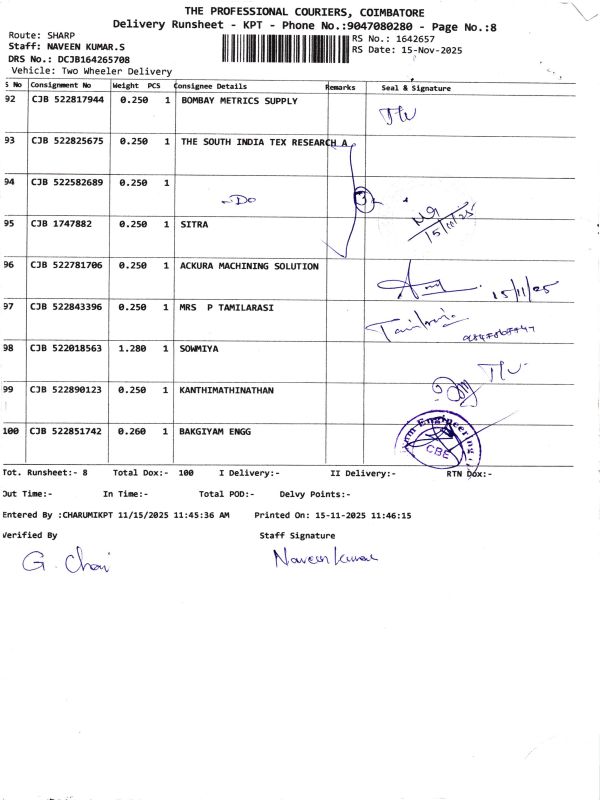 THE PROFESSIONAL COURIERS, COIMBATORE
Delivery Runsheet - KPT - Phone No.:9047080280 - Page No.:8
Route: SHARP
RS No.: 1642657
Staff: NAVEEN KUMAR.S
RS Date: 15-Nov-2025
DRS No.: DCJB164265708
Vehicle: Two Wheeler Delivery
S No Consignment No Weight PCS Consignee Details Remarks Seal & Signature
92 CJB 522817944 0.250 1 BOMBAY METRICS SUPPLY
93 CJB 522825675 0.250 1 THE SOUTH INDIA TEX RESEARCH A
94 CJB 522582689 0.250 1 -Do
95 CJB 1747882 0.250 1 SITRA 15/11/25
96 CJB 522781706 0.250 1 ACKURA MACHINING SOLUTION 15/11/25
97 CJB 522843396 0.250 1 MRS P TAMILARASI
98 CJB 522018563 1.280 1 SOWMIYA
99 CJB 522890123 0.250 1 KANTHIMATHINATHAN
100 CJB 522851742 0.260 1 BAKGIYAM ENGG CBE
Tot. Runsheet:- 8 Total Dox:- 100 I Delivery:- II Delivery:- RTN Dox:-
Out Time:- In Time:- Total POD:- Delvy Points:-
Entered By :CHARUMIKPT 11/15/2025 11:45:36 AM Printed On: 15-11-2025 11:46:15
Verified By Staff Signature
Naveen Kumar